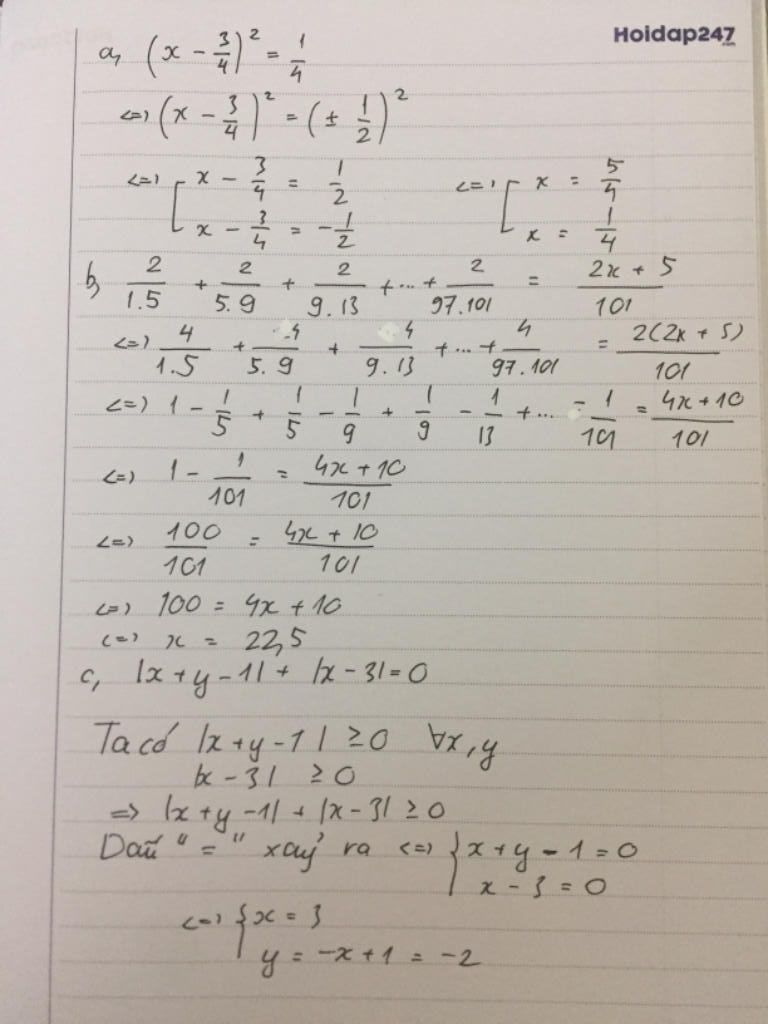 Hoidap247.com
a, (x - 3/4)² = 1/4
<=> (x - 3/4)² = (± 1/2)²
<=> [ x - 3/4 = 1/2 <=> [ x = 5/4
x - 3/4 = - 1/2 x = 1/4
b, 2/1.5 + 2/5.9 + 2/9.13 + ... + 2/97.101 = 2x + 5/101
<=> 4/1.5 + 4/5.9 + 4/9.13 + ... + 4/97.101 = 2(2x + 5)/101
<=> 1 - 1/5 + 1/5 - 1/9 + 1/9 - 1/13 + ... - 1/101 = 4x + 10/101
<=> 1 - 1/101 = 4x + 10/101
<=> 100/101 = 4x + 10/101
<=> 100 = 4x + 10
<=> x = 22,5
c, |x + y - 1| + |x - 3| = 0
Ta có |x + y - 1| ≥ 0 ∀x, y
|x - 3| ≥ 0
=> |x + y - 1| + |x - 3| ≥ 0
Dấu "=" xảy ra <=> { x + y - 1 = 0
x - 3 = 0
<=> { x = 3
y = -x + 1 = -2